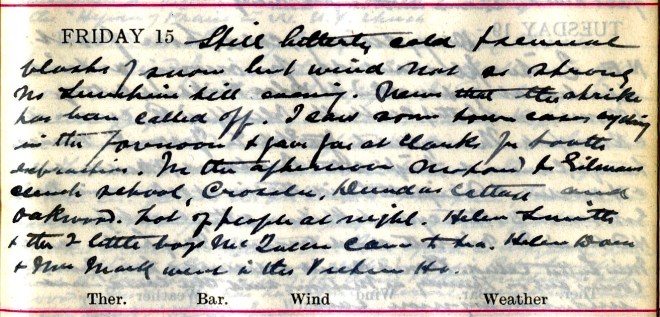 FRIDAY 15 Still bitterly cold & several
blasts of snow but wind not so strong
No Sunshine till evening. News that the strike
has been called off. I saw some town cases cycling
in the forenoon & gave gas at Clarks for tooth
extraction. In the afternoon to Gilmans
school, Crossen, Dundas and
Oakwood. Lot of people at night. Helen Smith
& the 2 little boys McQueen came to tea. Helen
& Mrs Mack went to the Picture Ho.
Ther. Bar. Wind Weather
TUESDAY 19